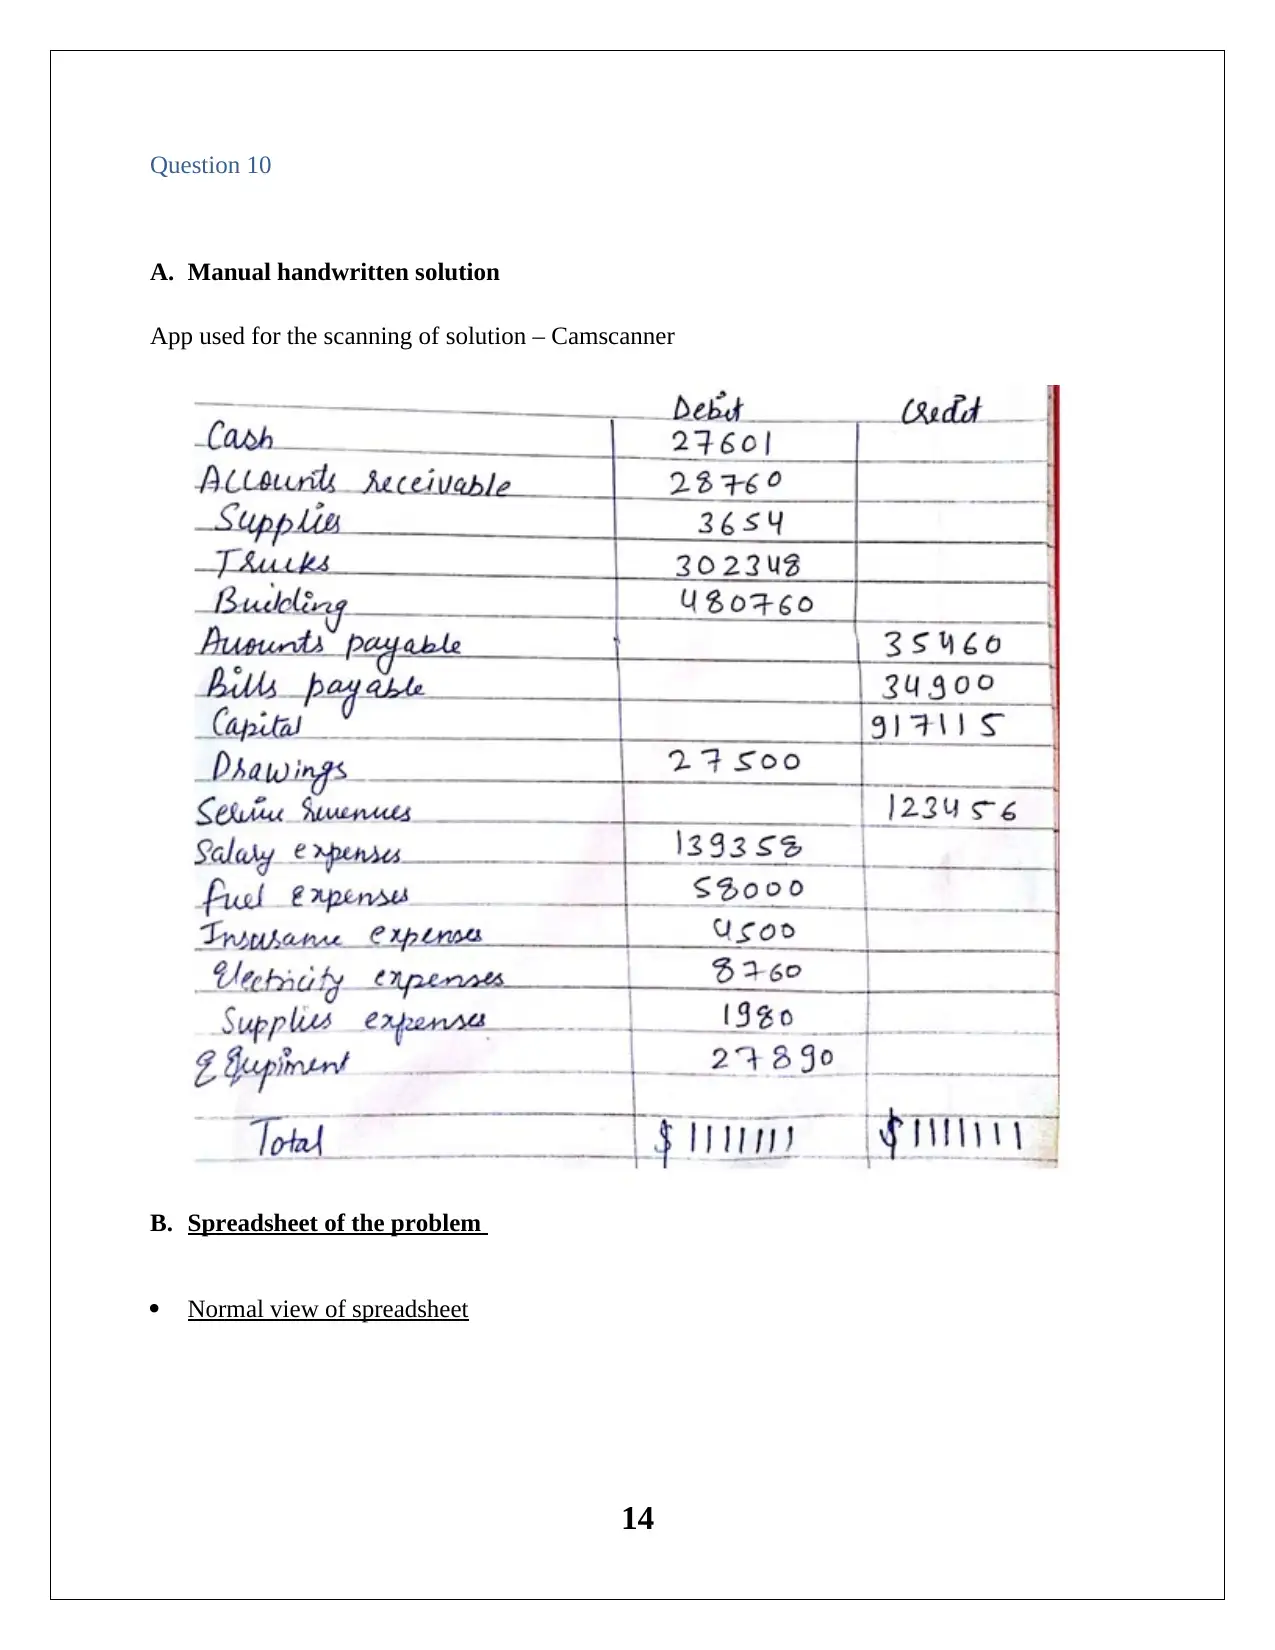 Question 10
A. Manual handwritten solution
App used for the scanning of solution – Camscanner
Debit Credit
Cash 27601
Accounts receivable 28760
Supplies 3654
Trucks 302348
Building 480760
Accounts payable 35460
Bills payable 34900
Capital 917115
Drawings 27500
Service revenues 123456
Salary expenses 139358
fuel expenses 58000
Insurance expenses 4500
Electricity expenses 8760
Supplies expenses 1980
Equpiment 27890
Total $1111111 $1111111
B. Spreadsheet of the problem
• Normal view of spreadsheet
14